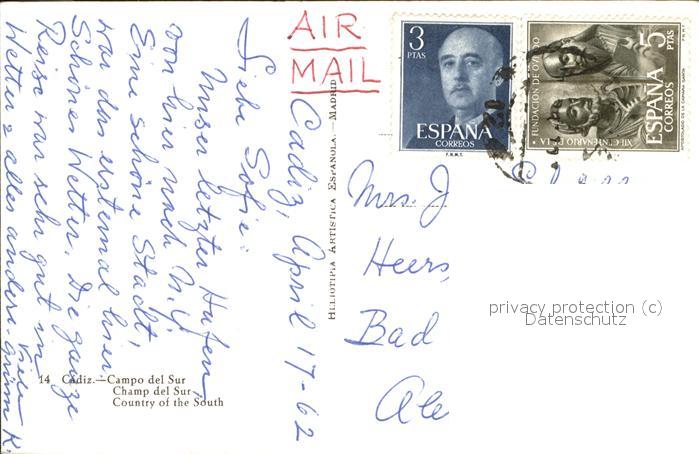 AIR
MAIL
Cadiz, April 17-62
Liebe Sofie:
Unser letzter Hafen,
von hier nach N.Y.
Eine schöne Stadt,
war das erstemal hier.
Schönes Wetter. Die ganze
Reise war sehr gut in
Wetter & alles andere. Viele
Grüsse K.
14 Cádiz.—Campo del Sur
Champ del Sur
Country of the South
HELIOTIPIA ARTISTICA ESPAÑOLA.—MADRID
3
PTAS
ESPAÑA
CORREOS
F.N.M.T.
5
PTAS
ESPAÑA
CORREOS
FUNDACION DE OVIEDO
XII CENTENARIO DE LA
Mrs. J
Heers,
Bad
Ale
privacy protection (c)
Datenschutz